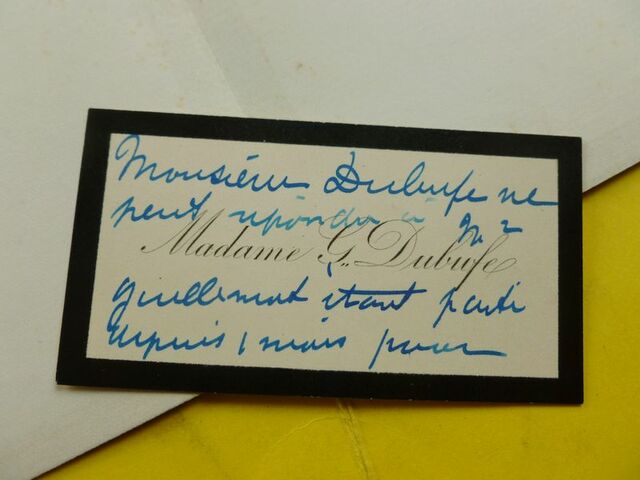 Monsieur Dubufe ne
peut répondre à Mr
Madame G. Dubufe
Guillemot étant parti
depuis 1 mois pour